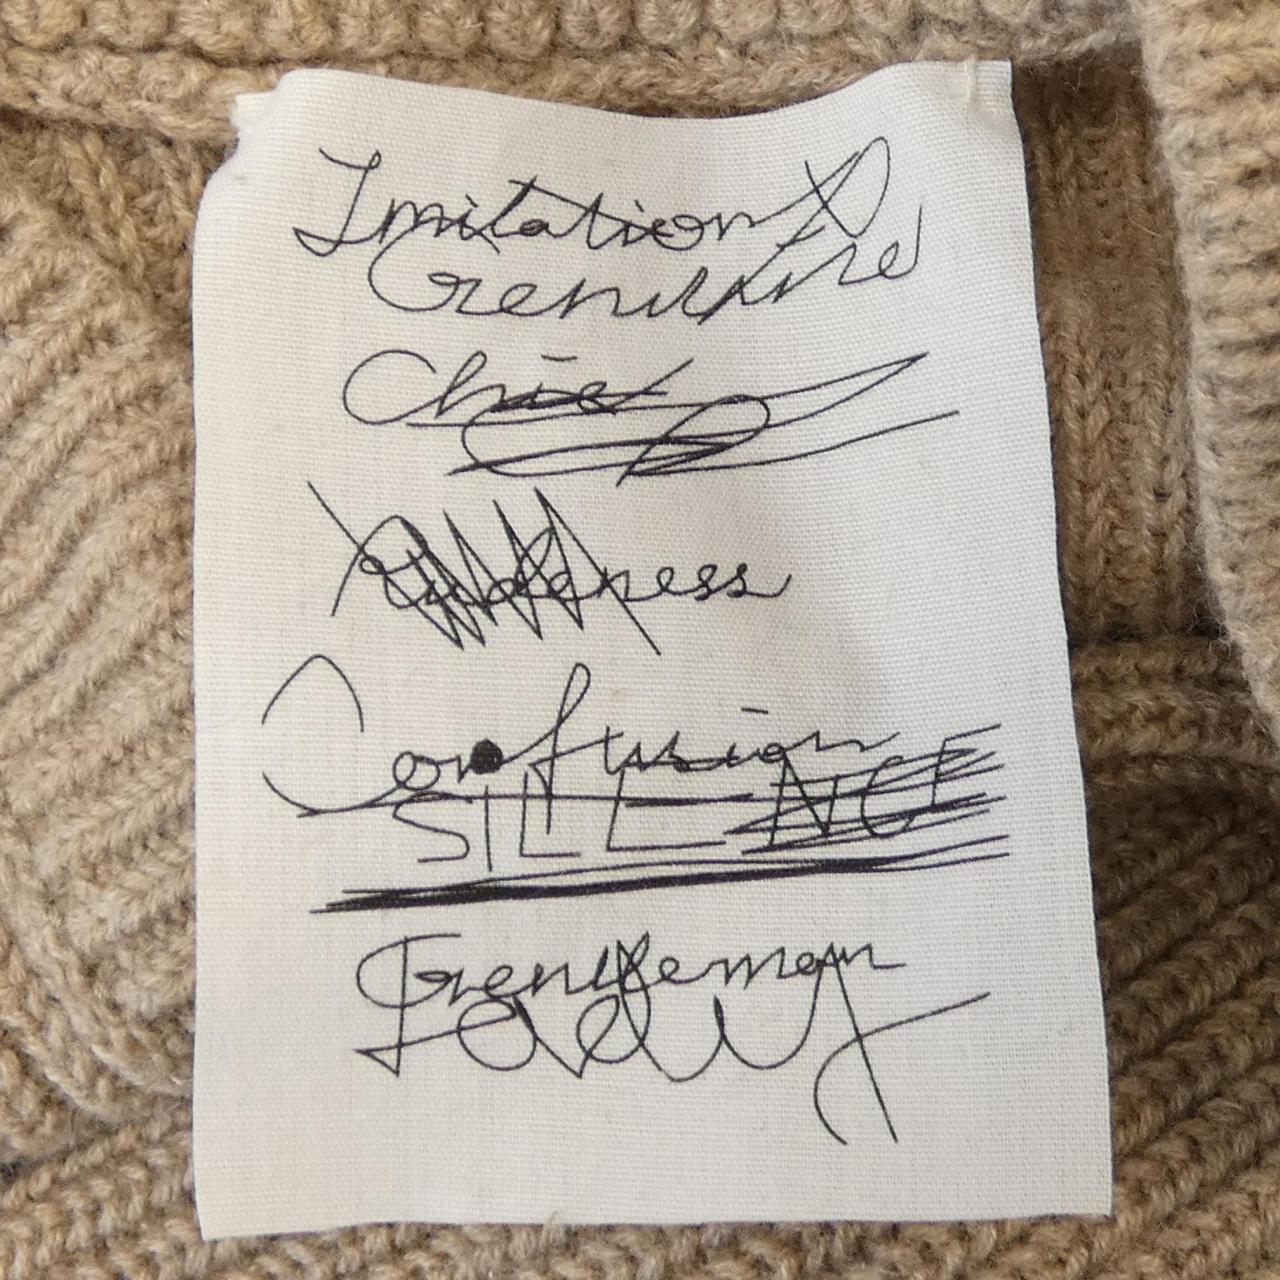 Imitation
Genuine
Chief
Rudeness
Confusion
SILENCE
Gentleman
Lady